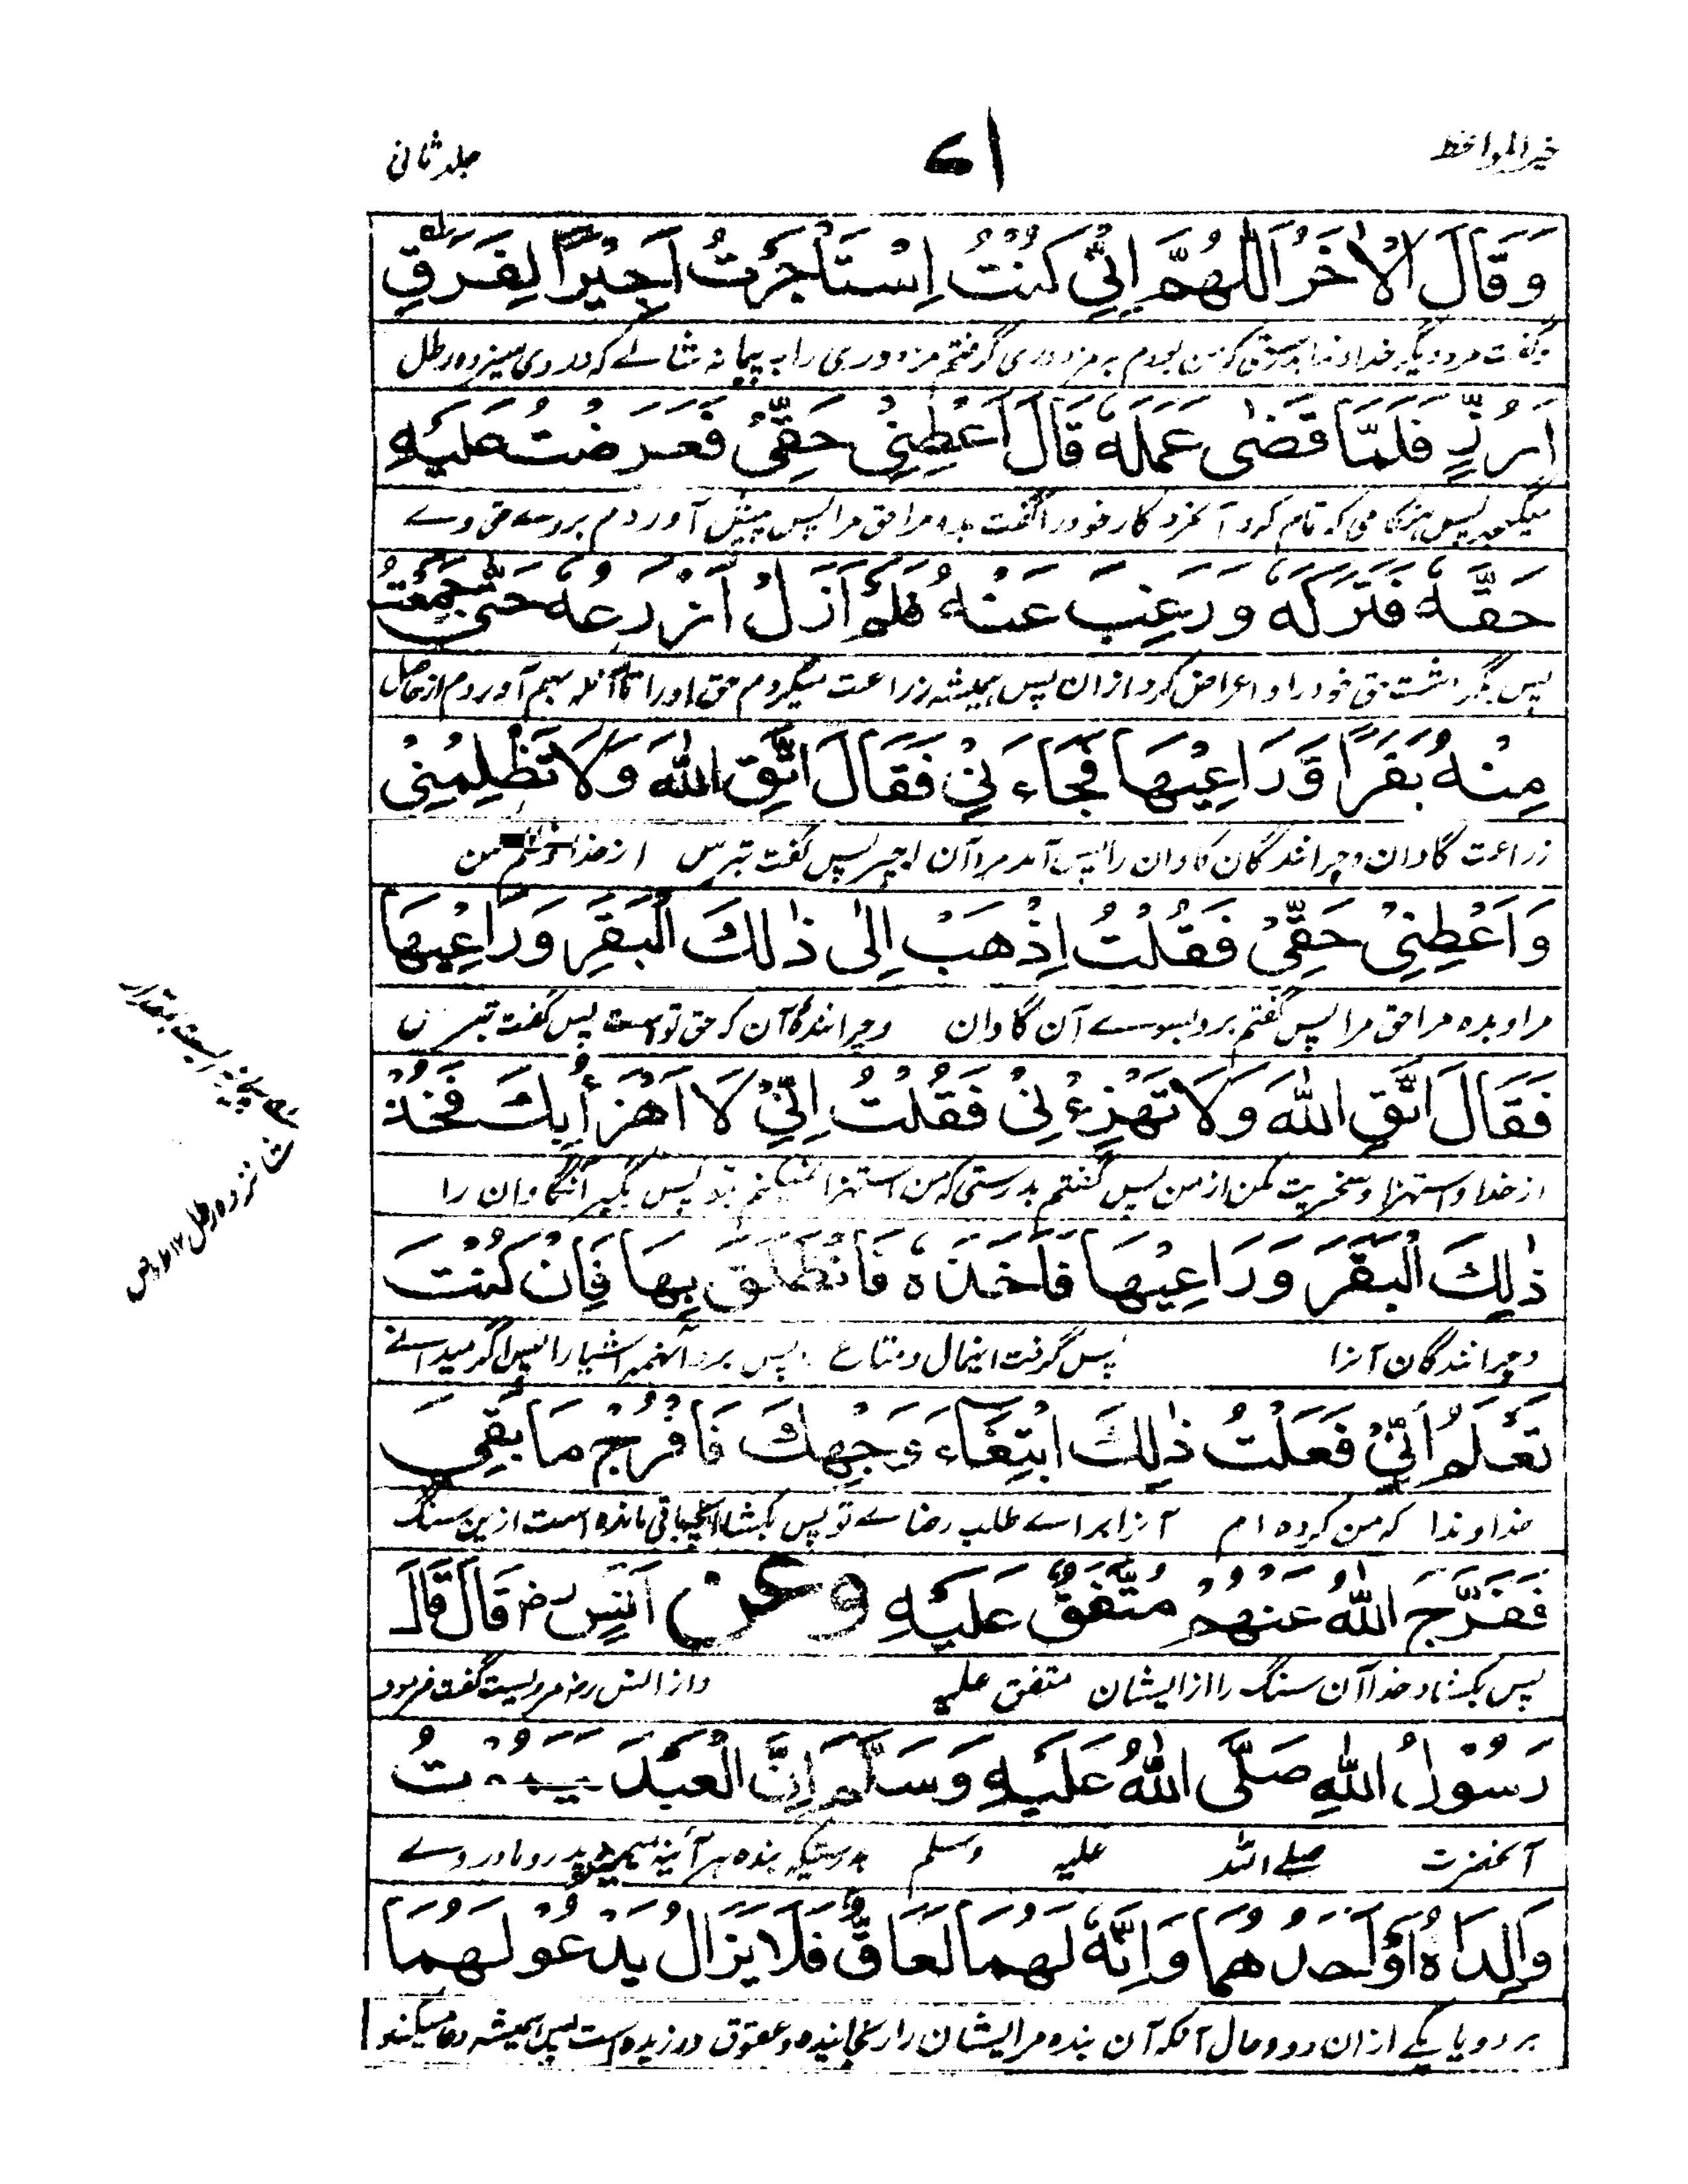 خیر المواعظ
۷۱
جلد ثانی
وَقَالَ الْاٰخَرُ اَللّٰهُمَّ اِنِّیْ كُنْتُ اِسْتَأْجَرْتُ اَجِیْرًا لِفَرَقِ
گفت مرد دیگر خداوندا بدرستی که من بودم به مزدوری گرفتم مزدوری را به پیمانه شالے که در وی سیزده رطل
اَرُزٍّ فَلَمَّا قَضٰی عَمَلَهٗ قَالَ اَعْطِنِیْ حَقِّیْ فَعَرَضْتُ عَلَیْهِ
پس هنگامی که تمام کرد آنمزد کار خود را گفت بده مرا حق مرا پس پیش آوردم بروے حق وے
حَقَّهٗ فَتَرَكَهٗ وَرَغِبَ عَنْهُ فَلَمْ اَزَلْ اَزْرَعُهٗ حَتّٰی جَمَعْتُ
پس بگذاشت حق خود را و اعراض کرد ازان پس همیشه زراعت میکردم حق او را تا آنکه بهم آوردم از حاصل
مِنْهُ بَقَرًا وَّرَاعِیْهَا فَجَاءَنِیْ فَقَالَ اتَّقِ اللّٰهَ وَلَا تَظْلِمْنِیْ
زراعت گاوان و چرانندگان گاوان را پس آمد مرا آن اجیر پس گفت بترس از خدا من
وَاَعْطِنِیْ حَقِّیْ فَقُلْتُ اِذْهَبْ اِلٰی ذٰلِكَ الْبَقَرِ وَرَاعِیْهَا
مرا و بده مرا حق مرا پس گفتم برو بسوے آن گاوان و چرانندگان آن که حق تو است پس گفت بترس
فَقَالَ اتَّقِ اللّٰهَ وَلَا تَهْزِءْ بِیْ فَقُلْتُ اِنِّیْ لَا اَهْزَأُ بِكَ فَخُذْ
از خدا و استهزا و سخریت مکن از من پس گفتم بدرستی که من استهزا نمیکنم بتو پس بگیر آنگاوان را
ذٰلِكَ الْبَقَرَ وَرَاعِیْهَا فَاَخَذَهٗ فَانْطَلَقَ بِهَا فَاِنْ كُنْتَ
و چرانندگان آنرا پس گرفت اینمال و متاع پس برد آنهمه اشیا را پس اگر میدانے
تَعْلَمُ اَنِّیْ فَعَلْتُ ذٰلِكَ ابْتِغَاءَ وَجْهِكَ فَافْرُجْ مَا بَقِیَ
خداوندا که من کرده ام آنرا براے طلب رضاے تو پس بکشا آنچه باقی مانده است ازین سنگ
فَفَرَّجَ اللّٰهُ عَنْهُمْ مُتَّفَقٌ عَلَیْهِ وَعَنْ اَنَسٍ رض قَالَ قَالَ
پس بکشاد خدا آن سنگ را از ایشان متفق علیه و از انس رض مرویست گفت فرمود
رَسُوْلُ اللّٰهِ صَلَّی اللّٰهُ عَلَیْهِ وَسَلَّمَ اِنَّ الْعَبْدَ یَمُوْتُ
آنحضرت صلے الله علیه وسلم بدرستیکه بنده هر آئینه پدر و مادر وے
وَالِدَاهُ اَوْ اَحَدُهُمَا وَاِنَّهٗ لَهُمَا لَعَاقٌّ فَلَا یَزَالُ یَدْعُوْ لَهُمَا
هر دو یا یکے ازان دو و حال آنکه آن بنده مر ایشان را رنجانیده و عقوق ورزیده است پس همیشه دعا میکند
شانزده رطل ۱۲